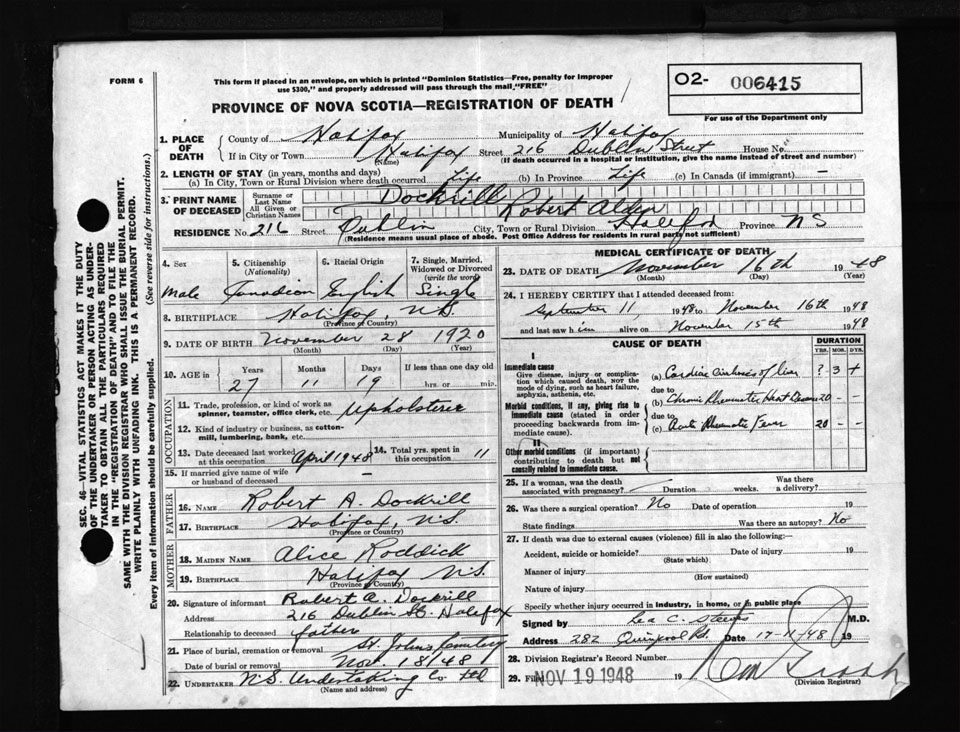 FORM 6
This form if placed in an envelope, on which is printed "Dominion Statistics—Free, penalty for improper
use $300," and properly addressed will pass through the mail, "FREE"
O2- 006415
For use of the Department only
PROVINCE OF NOVA SCOTIA—REGISTRATION OF DEATH
1. PLACE OF DEATH
County of Halifax Municipality of Halifax
If in City or Town Halifax Street 216 Dublin Street House No.
(Name) (If death occurred in a hospital or institution, give the name instead of street and number)
2. LENGTH OF STAY (in years, months and days)
(a) In City, Town or Rural Division where death occurred Life (b) In Province Life (c) In Canada (if immigrant) —
3. PRINT NAME OF DECEASED
Surname or Last Name Dockrill
All Given or Christian Names Robert Alden
RESIDENCE No. 216 Street Dublin City, Town or Rural Division Halifax Province NS
(Residence means usual place of abode. Post Office Address for residents in rural parts not sufficient)
4. Sex Male
5. Citizenship (Nationality) Canadian
6. Racial Origin English
7. Single, Married, Widowed or Divorced (write the word) Single
8. BIRTHPLACE Halifax, N.S.
(Province or Country)
9. DATE OF BIRTH November 28 1920
(Month) (Day) (Year)
10. AGE in Years Months Days If less than one day old
27 11 19 hrs. or min.
OCCUPATION
11. Trade, profession, or kind of work as spinner, teamster, office clerk, etc. Upholsterer
12. Kind of industry or business, as cotton-mill, lumbering, bank, etc.
13. Date deceased last worked at this occupation April 1948
14. Total yrs. spent in this occupation 11
15. If married give name of wife or husband of deceased
FATHER
16. NAME Robert A. Dockrill
17. BIRTHPLACE Halifax, N.S.
(Province or Country)
MOTHER
18. MAIDEN NAME Alice Roddick
19. BIRTHPLACE Halifax N.S.
(Province or Country)
20. Signature of informant Robert A. Dockrill
Address 216 Dublin St. Halifax
Relationship to deceased father
21. Place of burial, cremation or removal St. Johns Cemetery
Date of burial or removal Nov. 18/48
22. UNDERTAKER N.S. Undertaking Co Ltd
(Name and address)
MEDICAL CERTIFICATE OF DEATH
23. DATE OF DEATH November 16th 1948
(Month) (Day) (Year)
24. I HEREBY CERTIFY that I attended deceased from:
September 11, 1948 to November 16th 1948
and last saw him alive on November 15th 1948
CAUSE OF DEATH
DURATION
YRS. MOS. DYS.
I
Immediate cause
Give disease, injury or complication which caused death, NOT the mode of dying, such as heart failure, asphyxia, asthenia, etc.
(a) Cardiac Cirrhosis of liver ? 3 +
due to
Morbid conditions, if any, giving rise to immediate cause (stated in order proceeding backwards from immediate cause).
(b) Chronic Rheumatic Heart Disease 20 - -
due to
(c) Acute Rheumatic Fever 20 - -
II
Other morbid conditions (if important) contributing to death but not causally related to immediate cause.
25. If a woman, was the death associated with pregnancy? — Duration weeks. Was there a delivery?
26. Was there a surgical operation? No Date of operation 19
State findings Was there an autopsy? No
27. If death was due to external causes (violence) fill in also the following:—
Accident, suicide or homicide? Date of injury 19
(State which)
Manner of injury
(How sustained)
Nature of injury
Specify whether injury occurred in industry, in home, or in public place
Signed by C. Steeves M.D.
Address 282 Quinpool Rd. Date 17-11-48 19
28. Division Registrar's Record Number
29. Filed NOV 19 1948 19
(Division Registrar)
SEC. 46—VITAL STATISTICS ACT MAKES IT THE DUTY
OF THE UNDERTAKER OR PERSON ACTING AS UNDER-
TAKER TO OBTAIN ALL THE PARTICULARS REQUIRED
IN THE "REGISTRATION OF DEATH" AND TO FILE THE
SAME WITH THE DIVISION REGISTRAR WHO SHALL ISSUE THE BURIAL PERMIT.
WRITE PLAINLY WITH UNFADING INK. THIS IS A PERMANENT RECORD.
Every item of information should be carefully supplied. (See reverse side for instructions.)